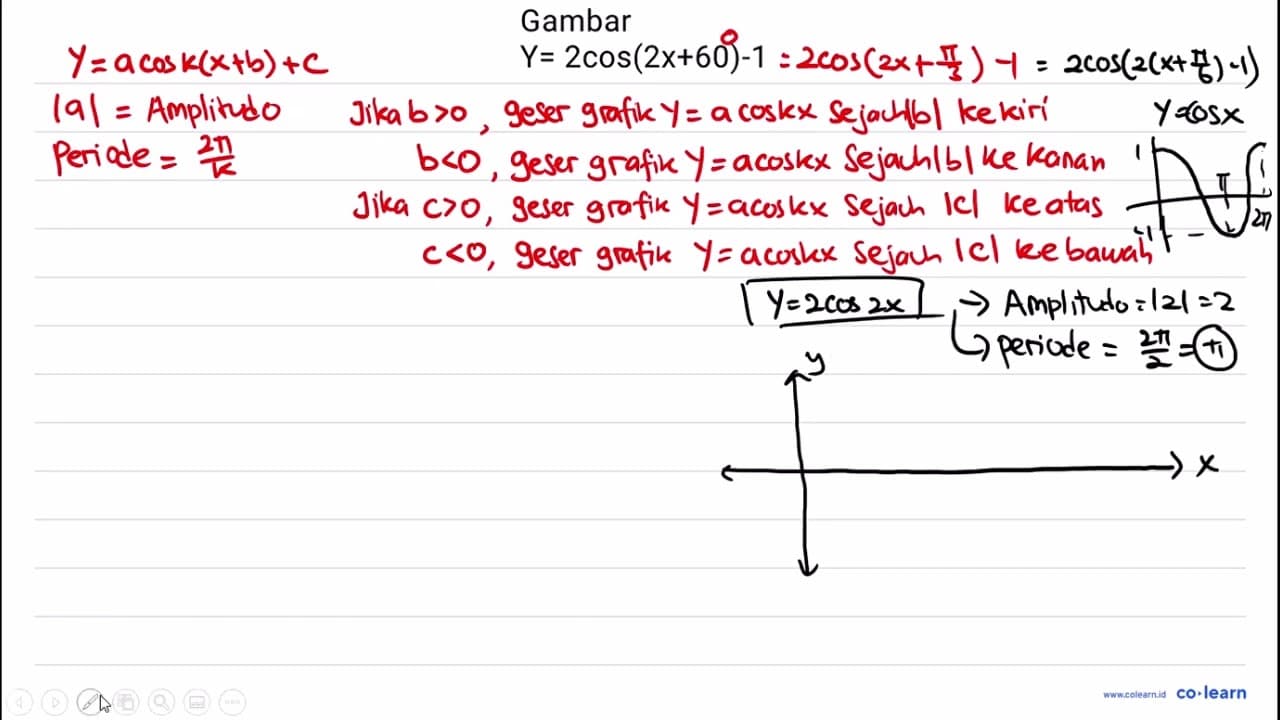 Gambar
Y= 2cos(2x+60°)-1 = 2cos(2x+π/3) -1 = 2cos(2(x+π/6)-1)
Y=a cos k(x+b)+c
|a| = Amplitudo
Periode = 2π/k
Jika b>0, geser grafik Y= a coskx sejauh|b| ke kiri
b<0, geser grafik Y=acoskx sejauh|b| ke kanan
Jika c>0, geser grafik Y=acoskx sejauh |c| ke atas
c<0, geser grafik Y=acoskx sejauh |c| ke bawah
Y=cosx
1
π
-1
2π
Y=2cos 2x → Amplitudo=|2|=2
periode = 2π/2 = π
y
x
www.colearn.id co·learn